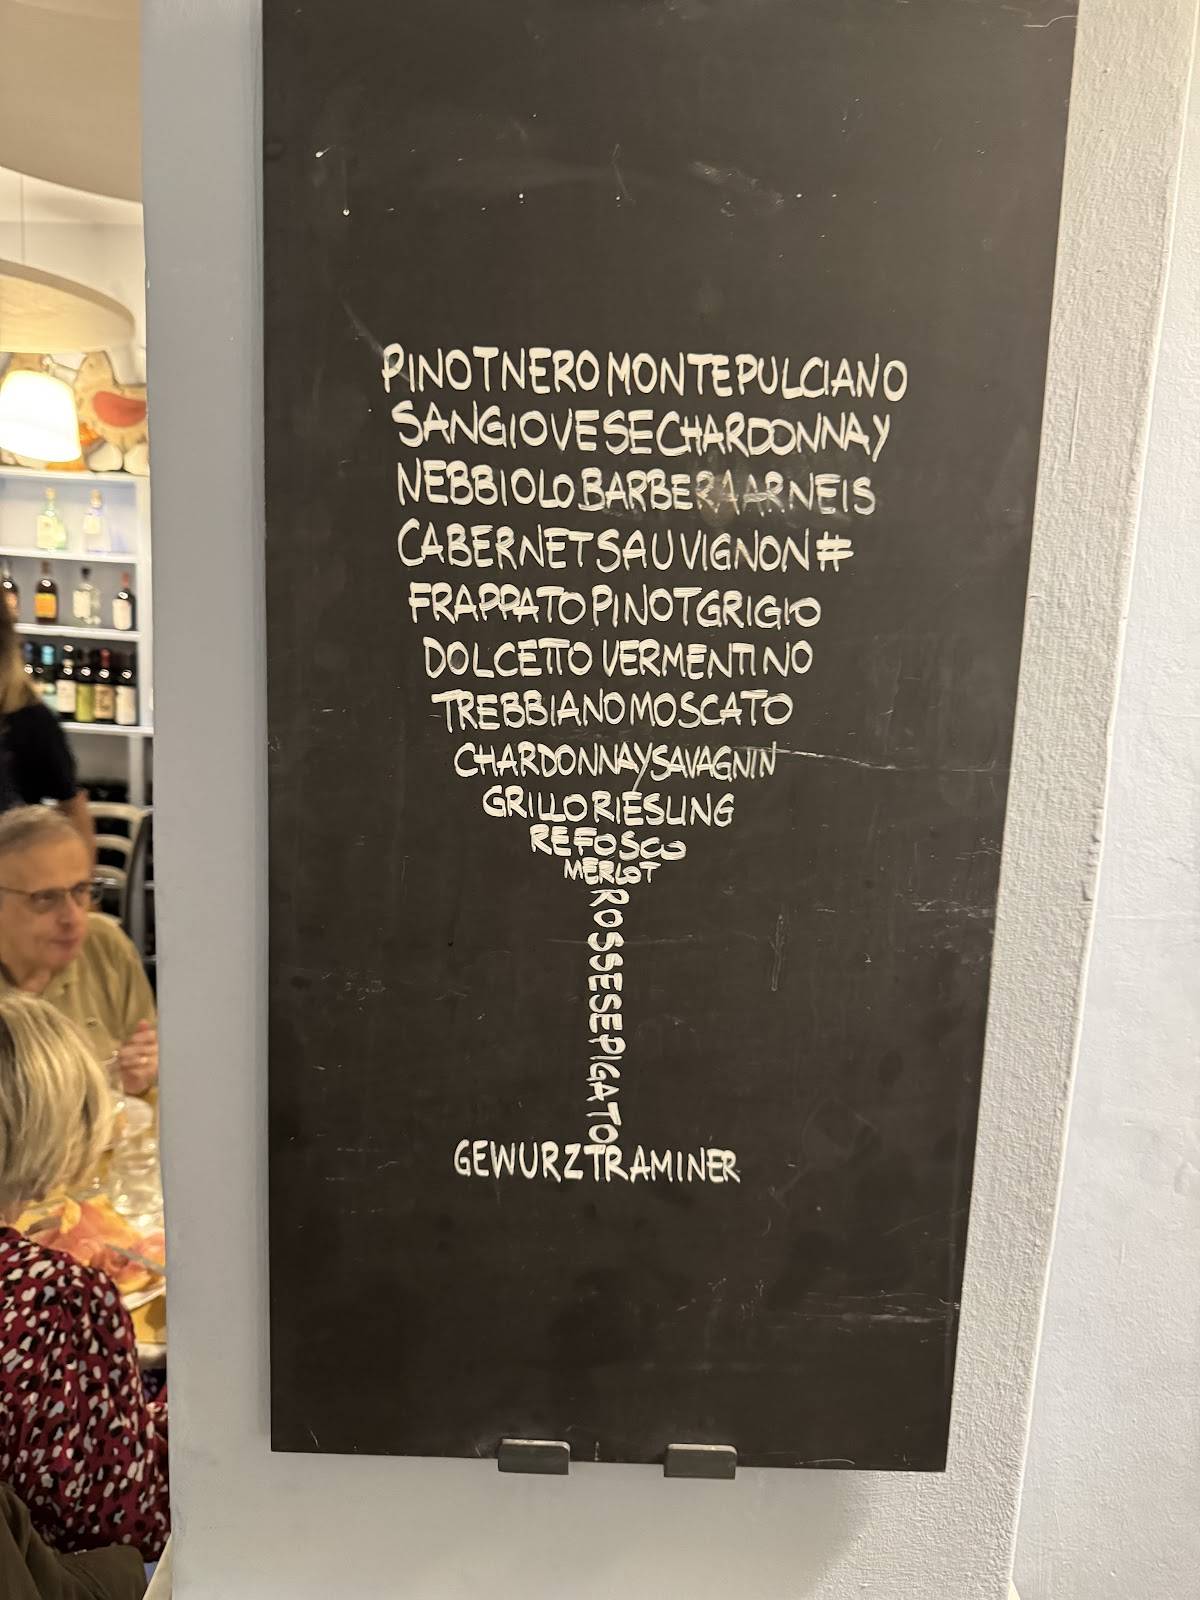 PINOTNERO MONTEPULCIANO
SANGIOVESECHARDONNAY
NEBBIOLOBARBERAARNEIS
CABERNETSAUVIGNON#
FRAPPATOPINOTGRIGIO
DOLCETTO VERMENTINO
TREBBIANOMOSCATO
CHARDONNAYSAVAGNIN
GRILLORIESLING
REFOSCO
MERLOT
ROSSESEPIGATO
GEWURZTRAMINER